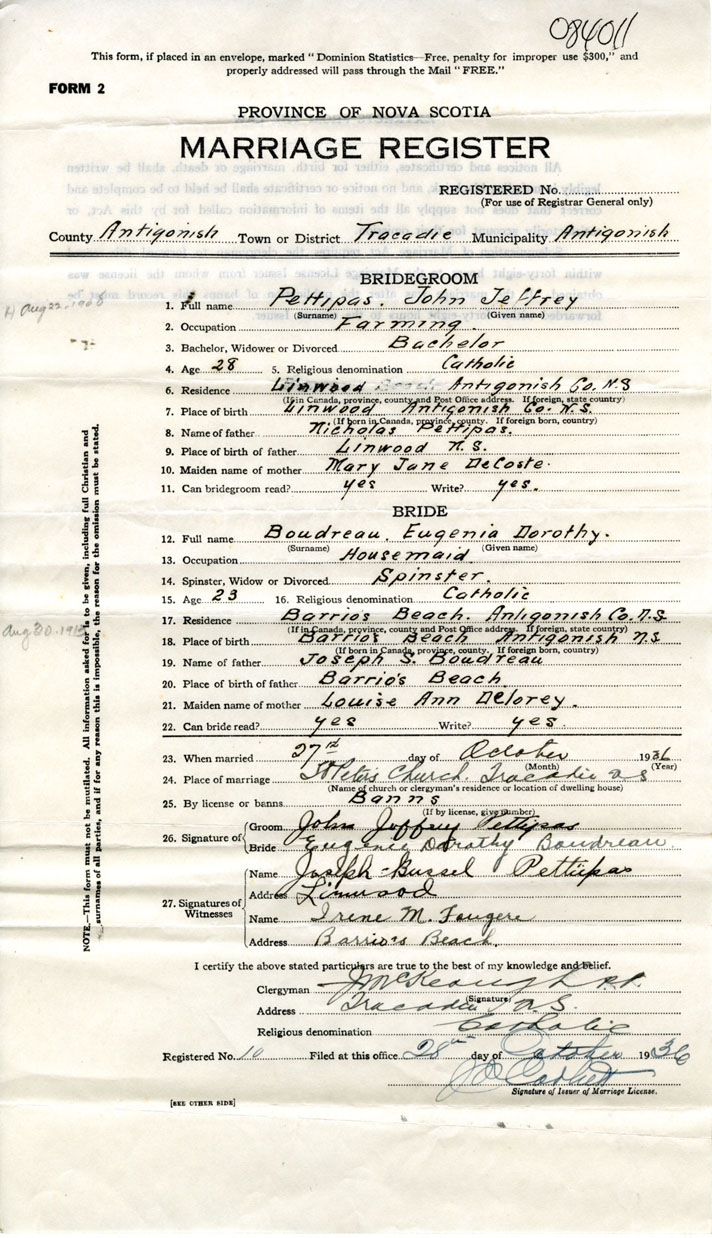 084011
This form, if placed in an envelope, marked "Dominion Statistics—Free, penalty for improper use $300," and
properly addressed will pass through the Mail "FREE."
FORM 2
PROVINCE OF NOVA SCOTIA
MARRIAGE REGISTER
REGISTERED No.
(For use of Registrar General only)
County Antigonish Town or District Tracadie Municipality Antigonish
BRIDEGROOM
1. Full name Pettipas. John Jeffrey
(Surname) (Given name)
2. Occupation Farming.
3. Bachelor, Widower or Divorced Bachelor
4. Age 28 5. Religious denomination Catholic
6. Residence Linwood Antigonish Co. N.S
(If in Canada, province, county and Post Office address. If foreign, state country)
7. Place of birth Linwood Antigonish Co. N.S.
(If born in Canada, province, county. If foreign born, country)
8. Name of father Nicholas Pettipas.
9. Place of birth of father Linwood N.S.
10. Maiden name of mother Mary Jane DeCoste.
11. Can bridegroom read? yes Write? yes.
BRIDE
12. Full name Boudreau, Eugenia Dorothy.
(Surname) (Given name)
13. Occupation Housemaid
14. Spinster, Widow or Divorced Spinster.
15. Age 23 16. Religious denomination Catholic
17. Residence Barrio's Beach, Antigonish Co. N.S
(If in Canada, province, county and Post Office address. If foreign, state country)
18. Place of birth Barrio's Beach Antigonish N.S
(If born in Canada, province, county. If foreign born, country)
19. Name of father Joseph S. Boudreau
20. Place of birth of father Barrio's Beach
21. Maiden name of mother Louise Ann Delorey.
22. Can bride read? yes Write? yes.
23. When married 27th day of October 1936
(Month) (Year)
24. Place of marriage St Peters Church. Tracadie N S
(Name of church or clergyman's residence or location of dwelling house)
25. By license or banns Banns
(If by license, give number)
26. Signature of Groom John Jeffrey Pettipas
Bride Eugenie Dorothy Boudreau
27. Signatures of Witnesses
Name Joseph Russel Pettipas
Address Linwood
Name Irene M. Fougere
Address Barrio's Beach.
I certify the above stated particulars are true to the best of my knowledge and belief.
Clergyman J. McKeough P.P.
(Signature)
Address Tracadie N.S.
Religious denomination Catholic
Registered No. 10 Filed at this office 28th day of October 1936
Signature of Issuer of Marriage License.
[SEE OTHER SIDE]
NOTE.—This form must not be mutilated. All information asked for is to be given, including full Christian and
surnames of all parties, and if for any reason this is impossible, the reason for the omission must be stated.